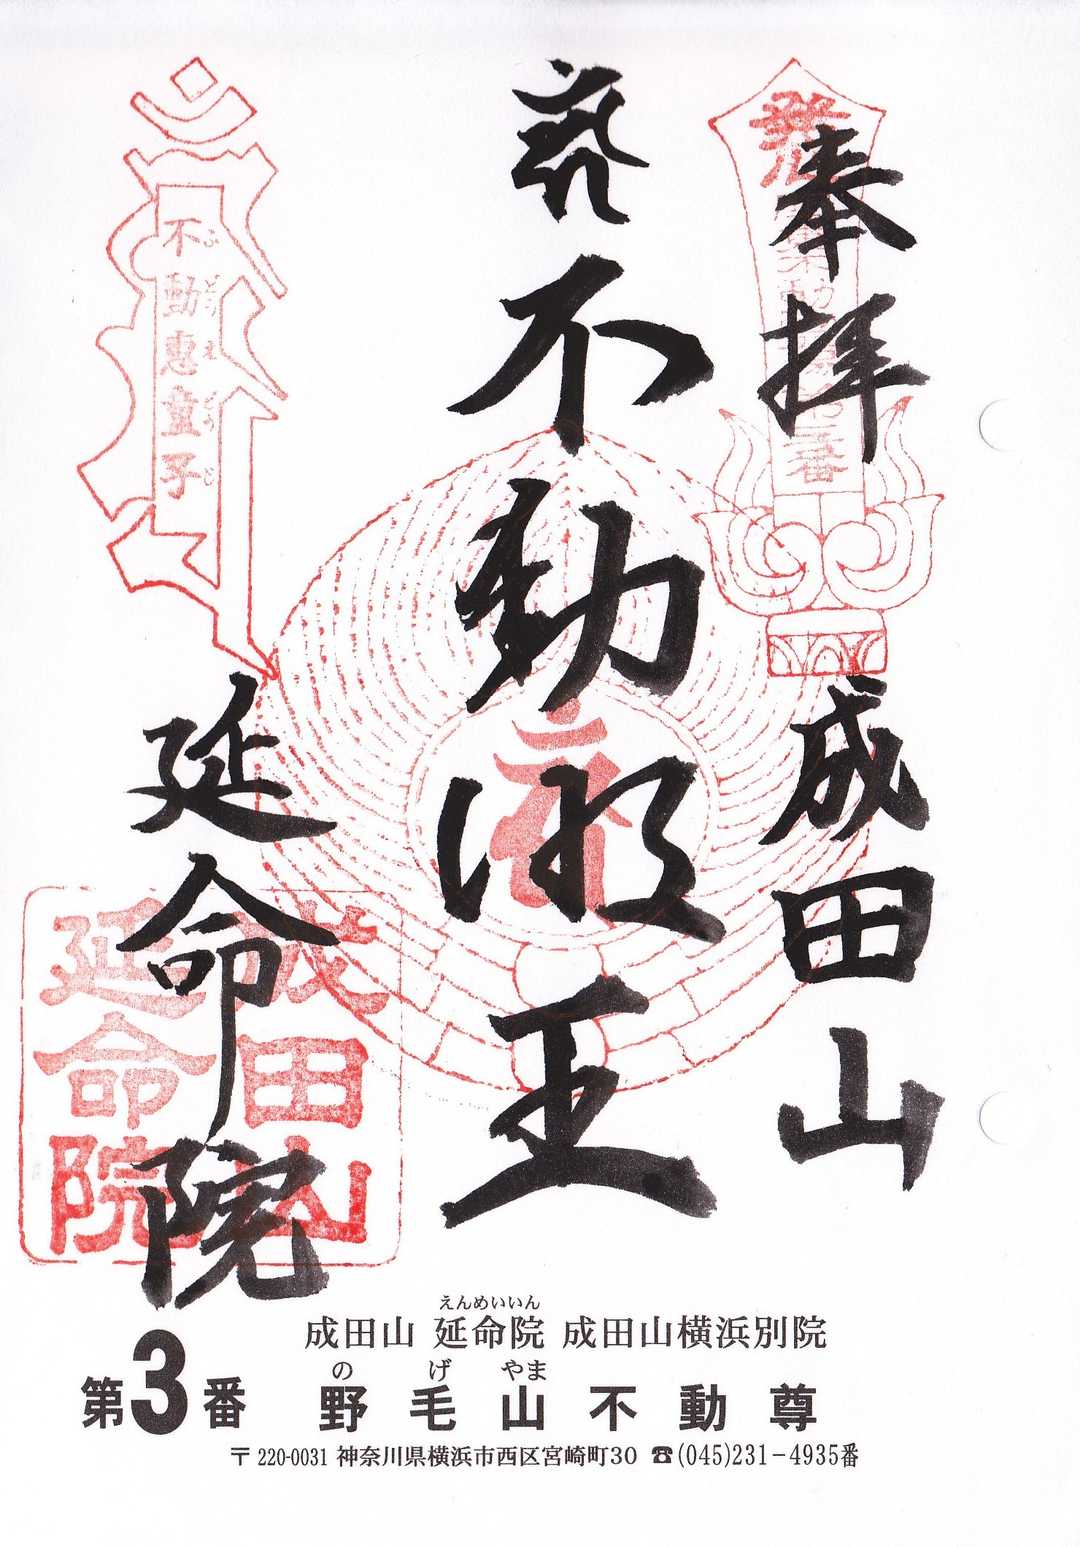 奉拝
成田山
不動明王
延命院
発心
第三番
不動恵童子
ふどうえどうじ
成田山
延命院
えんめいいん
成田山 延命院 成田山横浜別院
のげやま
第3番 野毛山不動尊
〒220-0031 神奈川県横浜市西区宮崎町30 ☎(045)231-4935番